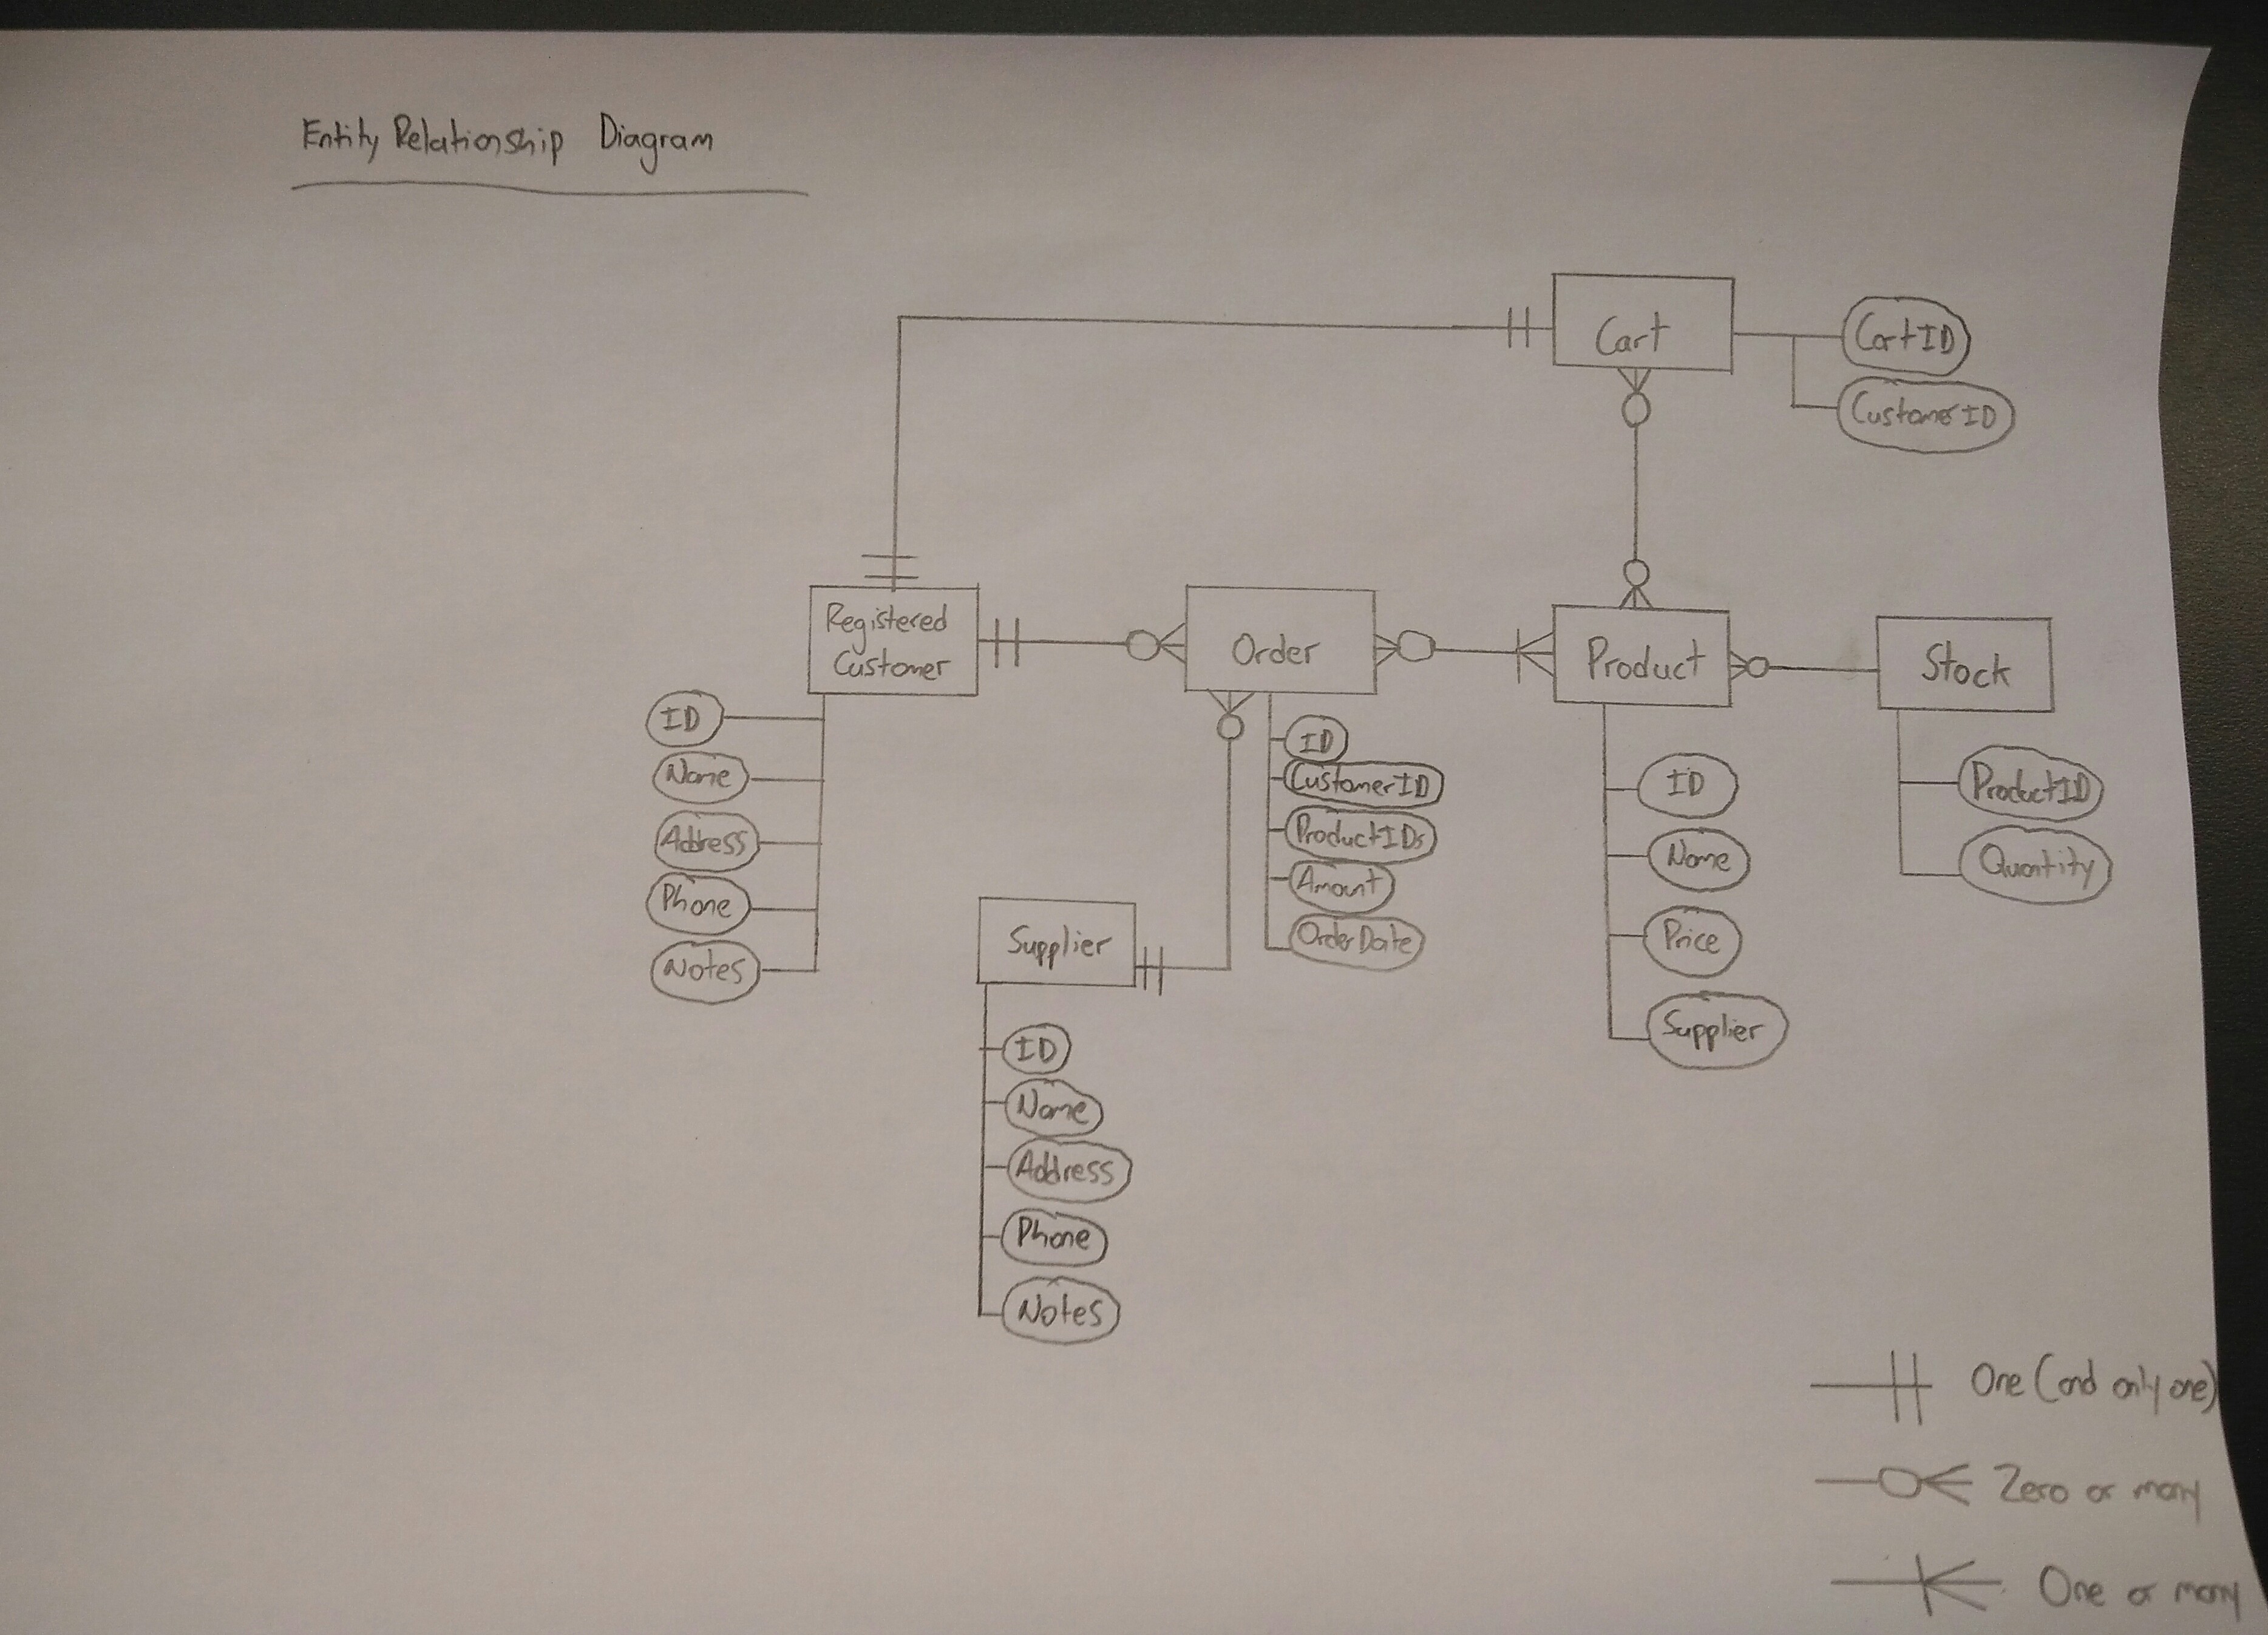 Entity Relationship Diagram
Cart
CartID
CustomerID
Registered
Customer
Order
Product
Stock
ID
Name
Address
Phone
Notes
ID
CustomerID
ProductIDs
Amount
OrderDate
ID
Name
Price
Supplier
ProductID
Quantity
Supplier
ID
Name
Address
Phone
Notes
One (and only one)
Zero or many
One or many